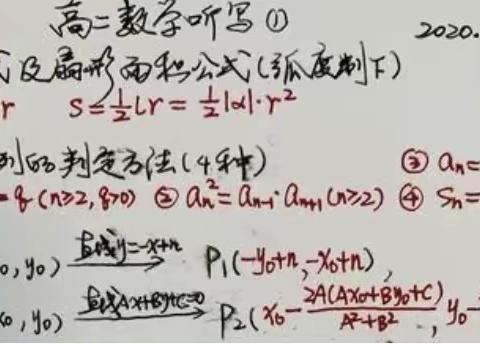 高二数学听写① 2020.
式及扇形面积公式(弧度制下)
r S=½lr=½|α|·r²
列的判定方法(4种) ③ aₙ=
=q(n≥2,q>0) ② aₙ²=aₙ₋₁·aₙ₊₁(n≥2) ④ Sₙ=
₀,y₀) 直线y=-x+n → P₁(-y₀+n,-x₀+n),
x₀,y₀) 直线Ax+By+C=0 → P₂(x₀-2A(Ax₀+By₀+C)/A²+B²,y₀-